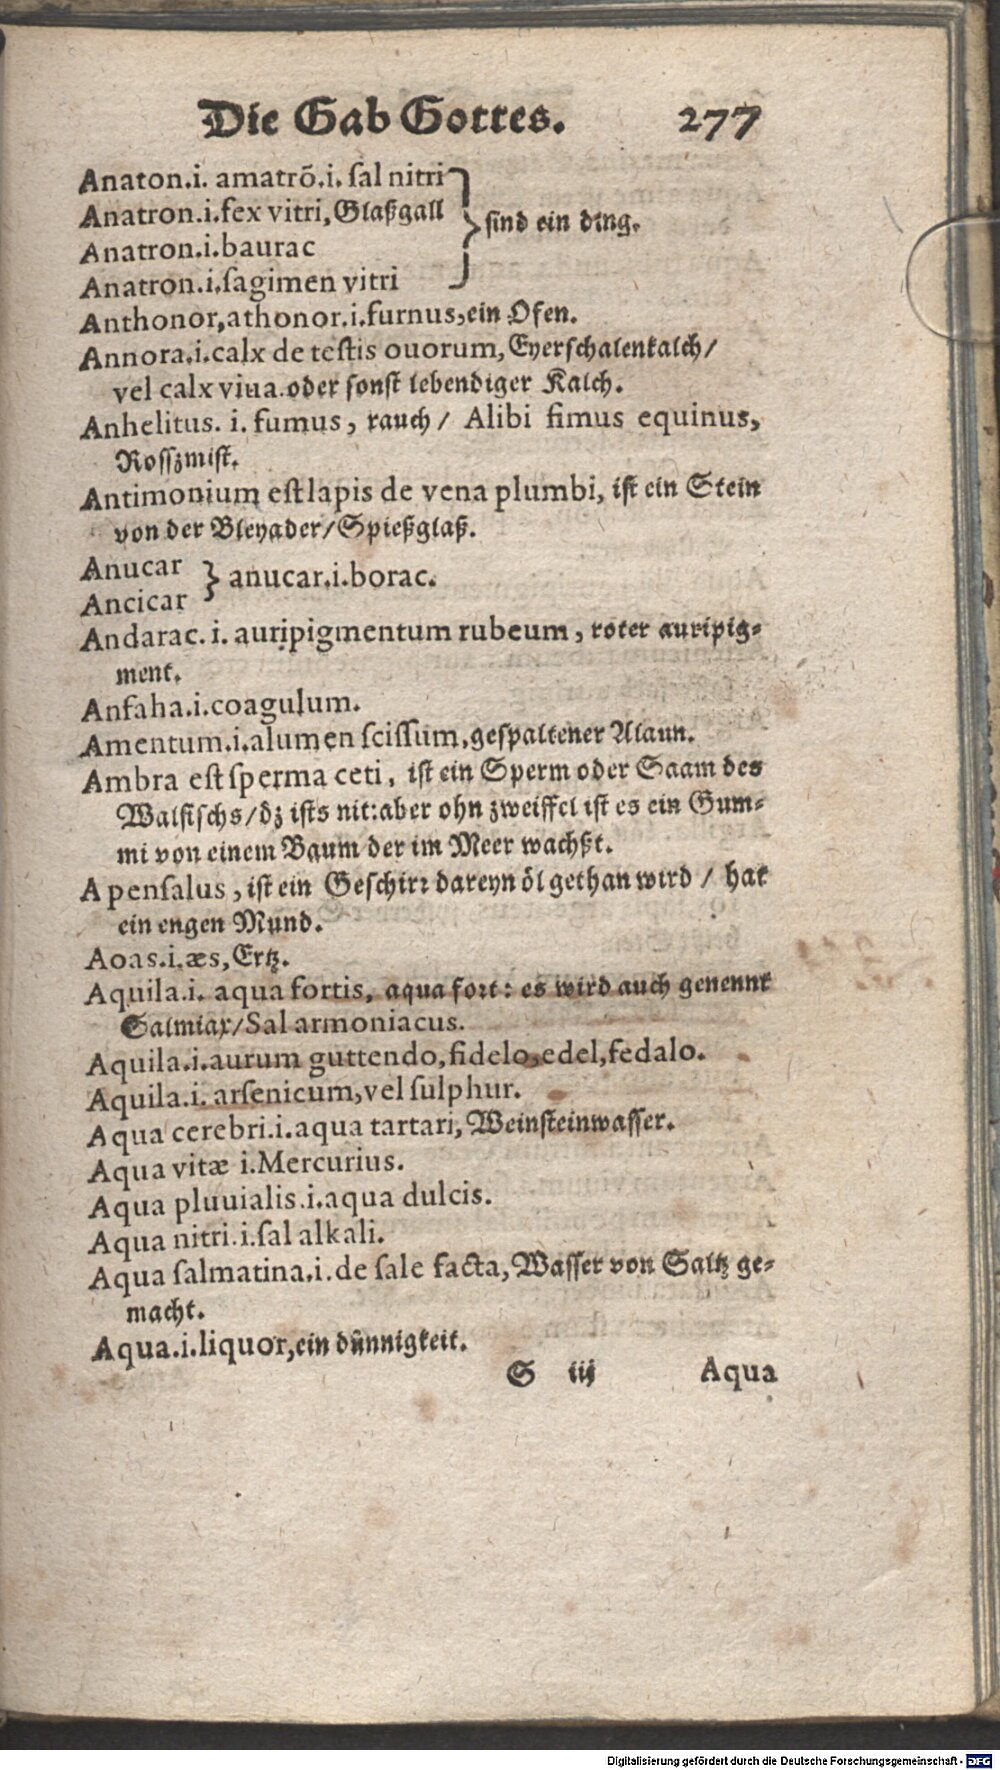 Die Gab Gottes. 277
Anaton.i. amatrõ.i. ſal nitri
Anatron.i.fex vitri, Glaßgall
Anatron.i.baurac
Anatron.i.ſagimen vitri
} ſind ein ding.
Anthonor,athonor.i.furnus,ein Ofen.
Annora.i.calx de teſtis ouorum, Eyerſchalenkalch/
vel calx viua.oder ſonſt lebendiger Kalch.
Anhelitus. i. fumus, rauch/ Alibi fimus equinus,
Roſſzmiſt.
Antimonium eſt lapis de vena plumbi, iſt ein Stein
von der Bleyader/Spießglaß.
Anucar
Ancicar
} anucar.i.borac.
Andarac. i. auripigmentum rubeum, roter auripig-
ment.
Anfaha.i.coagulum.
Amentum.i.alumen sciſſum,geſpaltener Alaun.
Ambra eſt ſperma ceti, iſt ein Sperm oder Saam des
Walfiſchs/dz iſts nit:aber ohn zweiffel iſt es ein Gum-
mi von einem Baum der im Meer wachßt.
Apenſalus, iſt ein Geſchirꝛ dareyn öl gethan wird / hat
ein engen Mund.
Aoas.i.æs, Ertz.
Aquila.i. aqua fortis, aqua foꝛt: es wird auch genennt
Salmiax/Sal armoniacus.
Aquila.i.aurum guttendo,fidelo,edel,fedalo.
Aquila.i. arſenicum,vel ſulphur.
Aqua cerebri.i.aqua tartari, Weinſteinwaſſer.
Aqua vitæ i.Mercurius.
Aqua pluuialis.i.aqua dulcis.
Aqua nitri.i.ſal alkali.
Aqua ſalmatina.i.de ſale facta, Waſſer von Saltz ge-
macht.
Aqua.i.liquor,ein dünnigkeit.
S iij Aqua
Digitalisierung gefördert durch die Deutsche Forschungsgemeinschaft - DFG